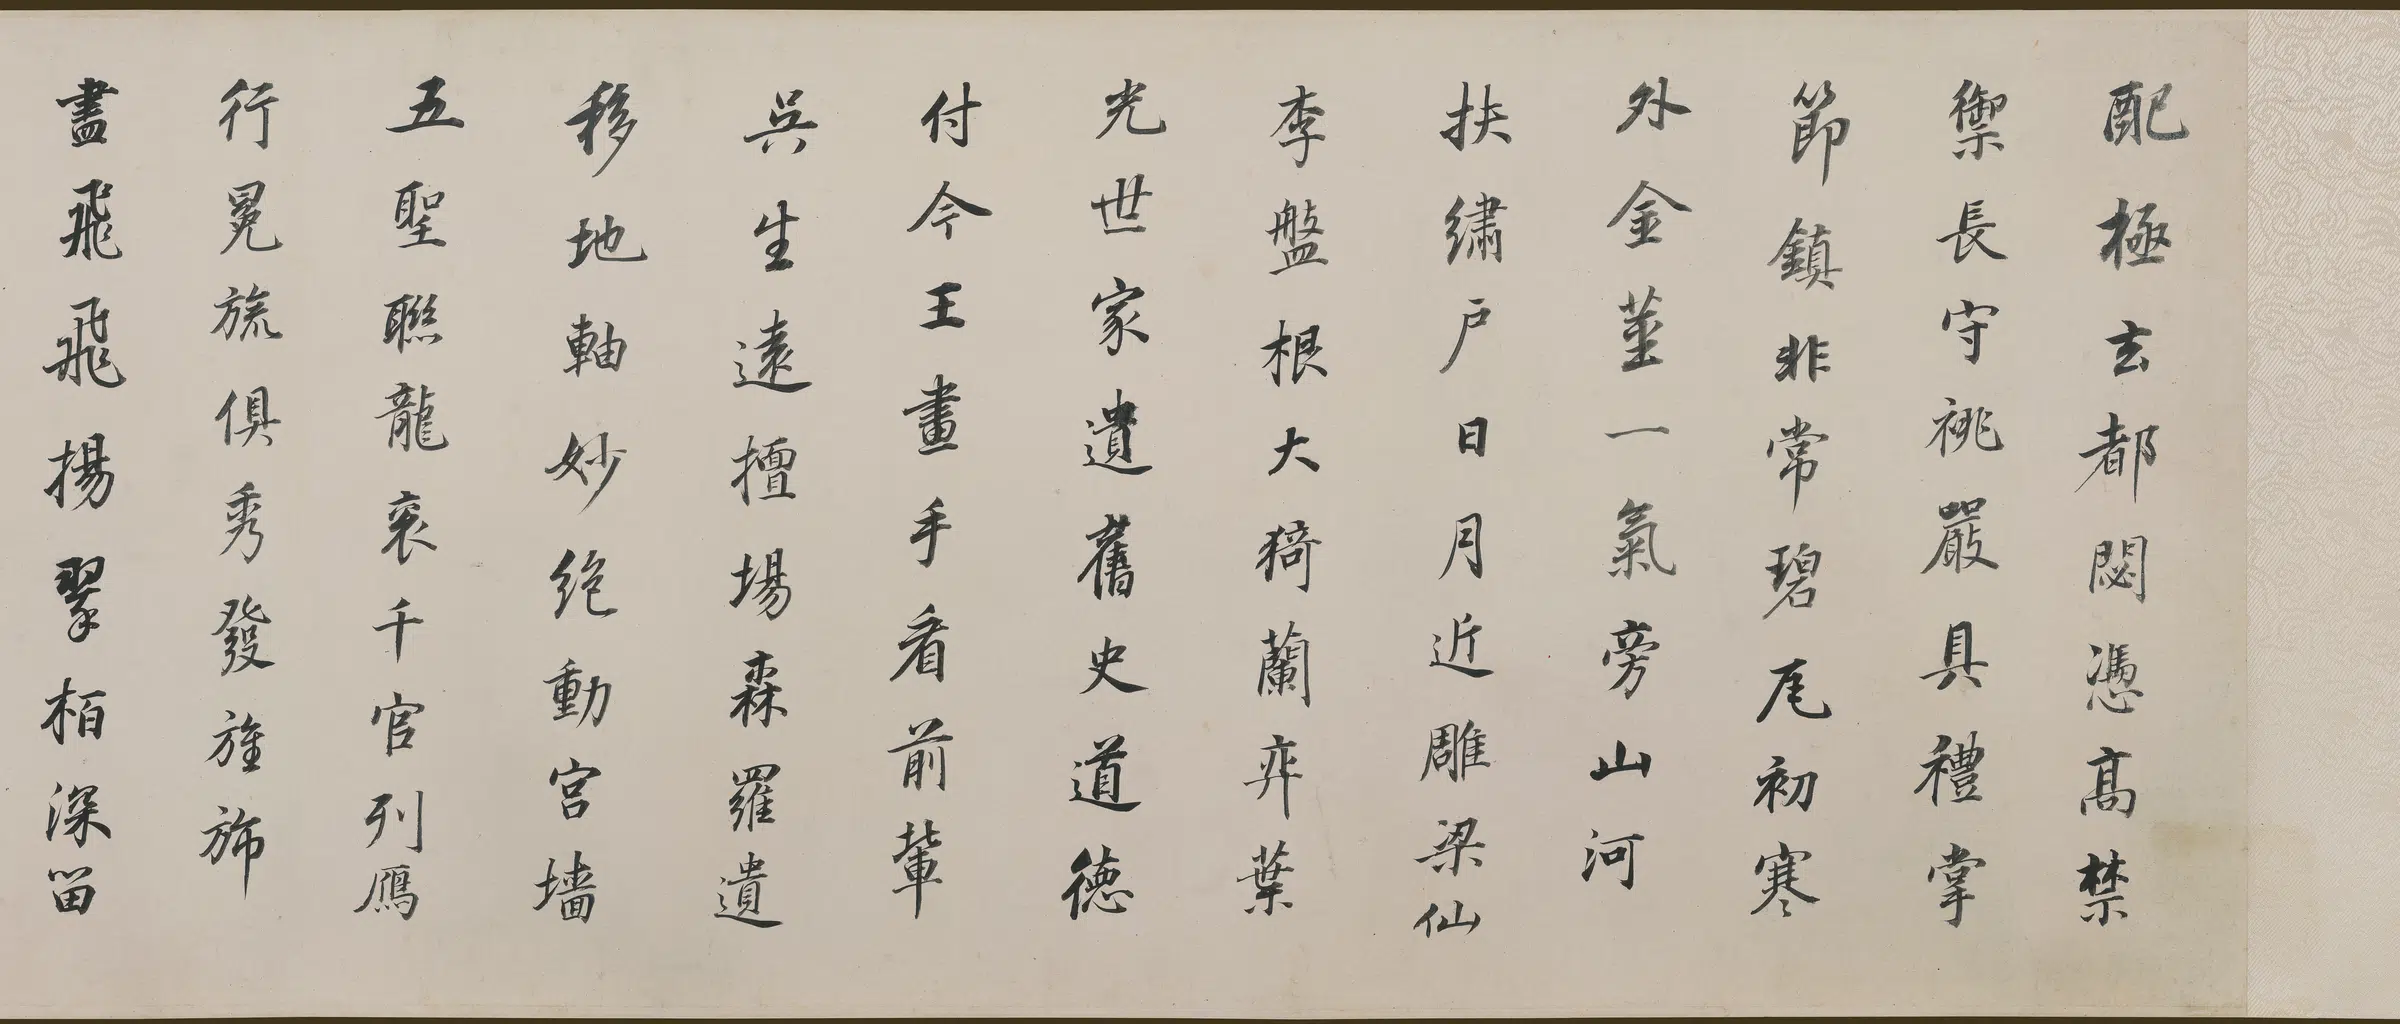 配極玄都閟憑高禁
禦長守祧嚴具禮掌
節鎮非常碧尾初寒
外金莖一氣旁山河
扶繡戶日月近雕梁仙
李盤根大猗蘭弈葉
光世家遺舊史道德
付今王畫手看前輩
吳生遠擅場森羅遺
移地軸妙絕動宮墻
五聖聯龍袞千官列鴈
行冕旒俱秀發旌旆
盡飛飛揚翠柏深留